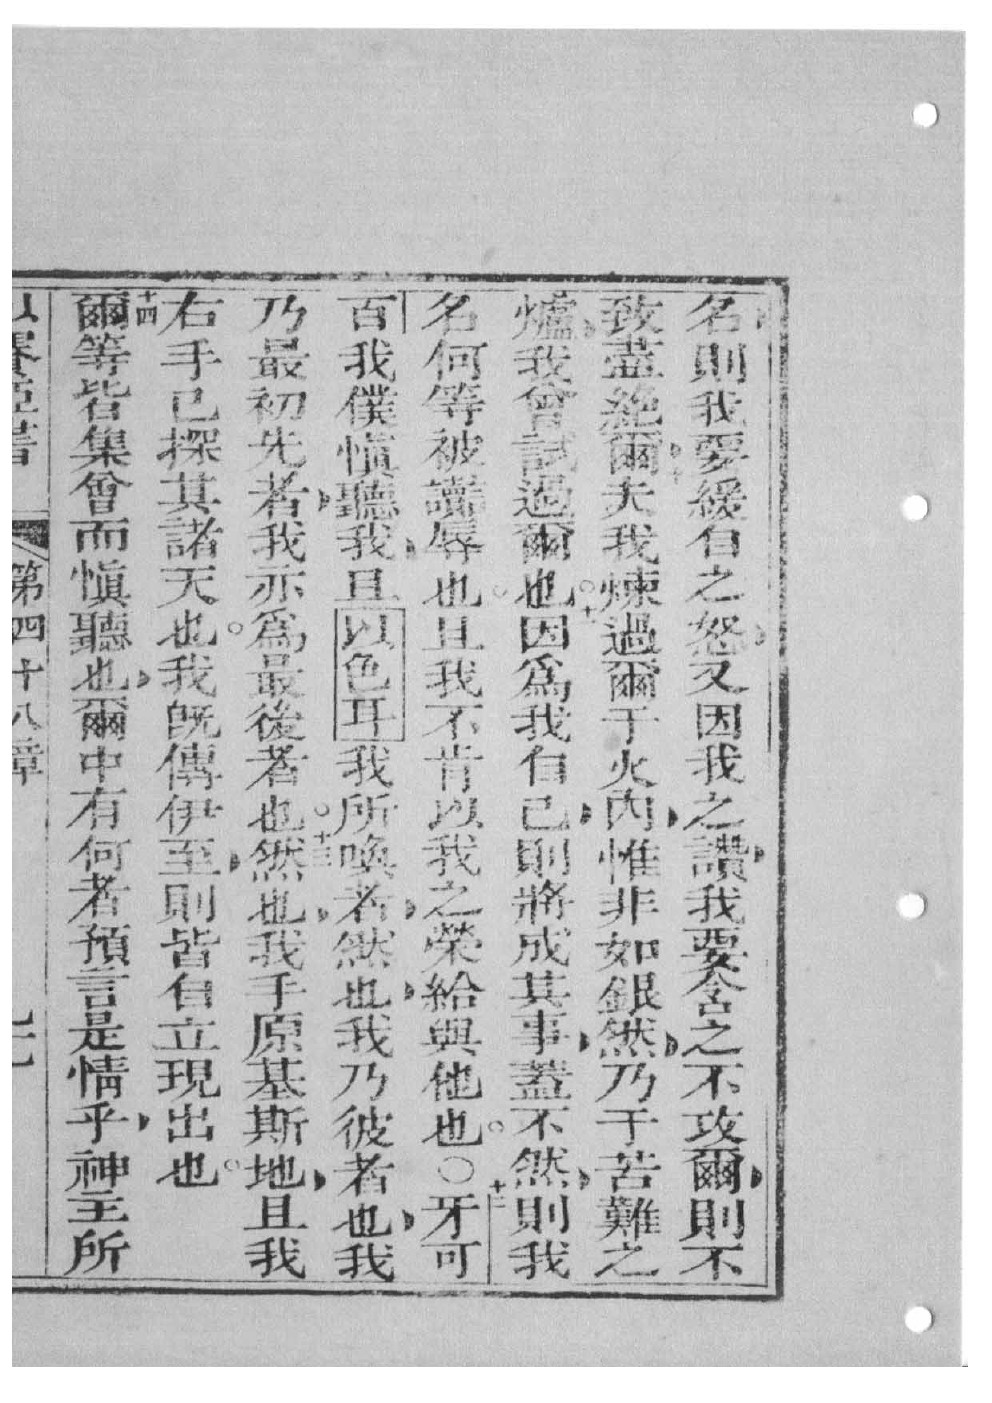 名則我要緩自之怒又因我之讚我要含之不攻爾則不
致盡絕爾十夫我煉過爾于火內惟非如銀然乃于苦難之
爐我曾試過爾也十一因爲我自己則將成其事蓋不然則我
名何等被讟辱也且我不肯以我之榮給與他也○十二牙可
百我僕慎聽我且以色耳我所喚者然也我乃彼者也我
乃最初先者我亦爲最後者也十三然也我手原基斯地且我
右手已探其諸天也我旣傳伊至則皆自立現出也
十四爾等皆集會而慎聽也爾中有何者預言是情乎神主所
以賽亞書 第四十八章